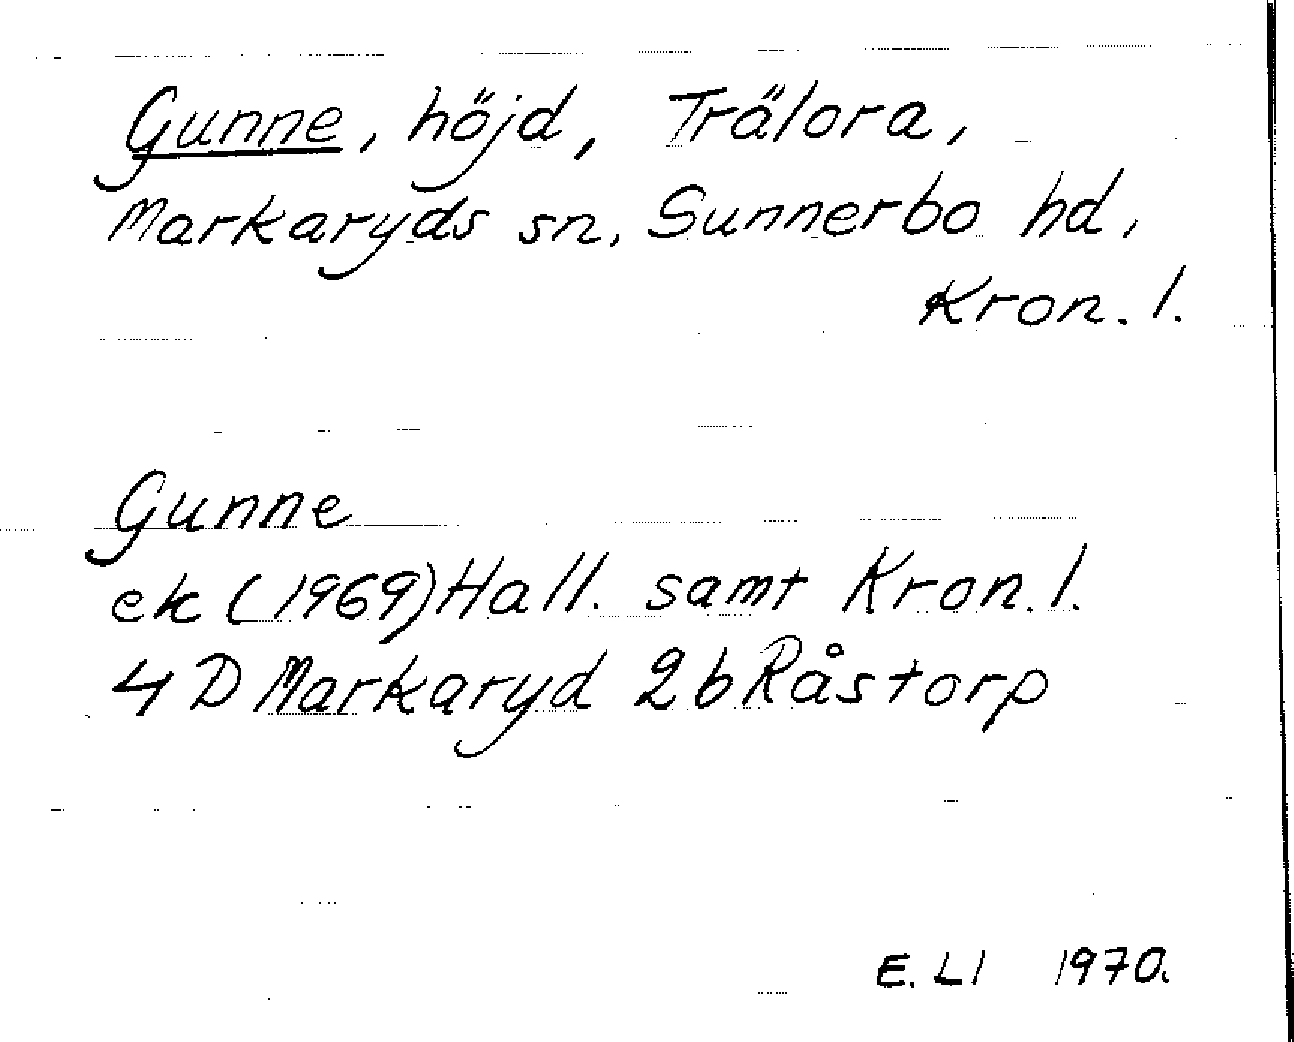 Gunne, höjd, Trälora,
Markaryds sn, Sunnerbo hd,
Kron. l.
Gunne
ek (1969) Hall. samt Kron. l.
4 D Markaryd 2b Råstorp
E. LI 1970.